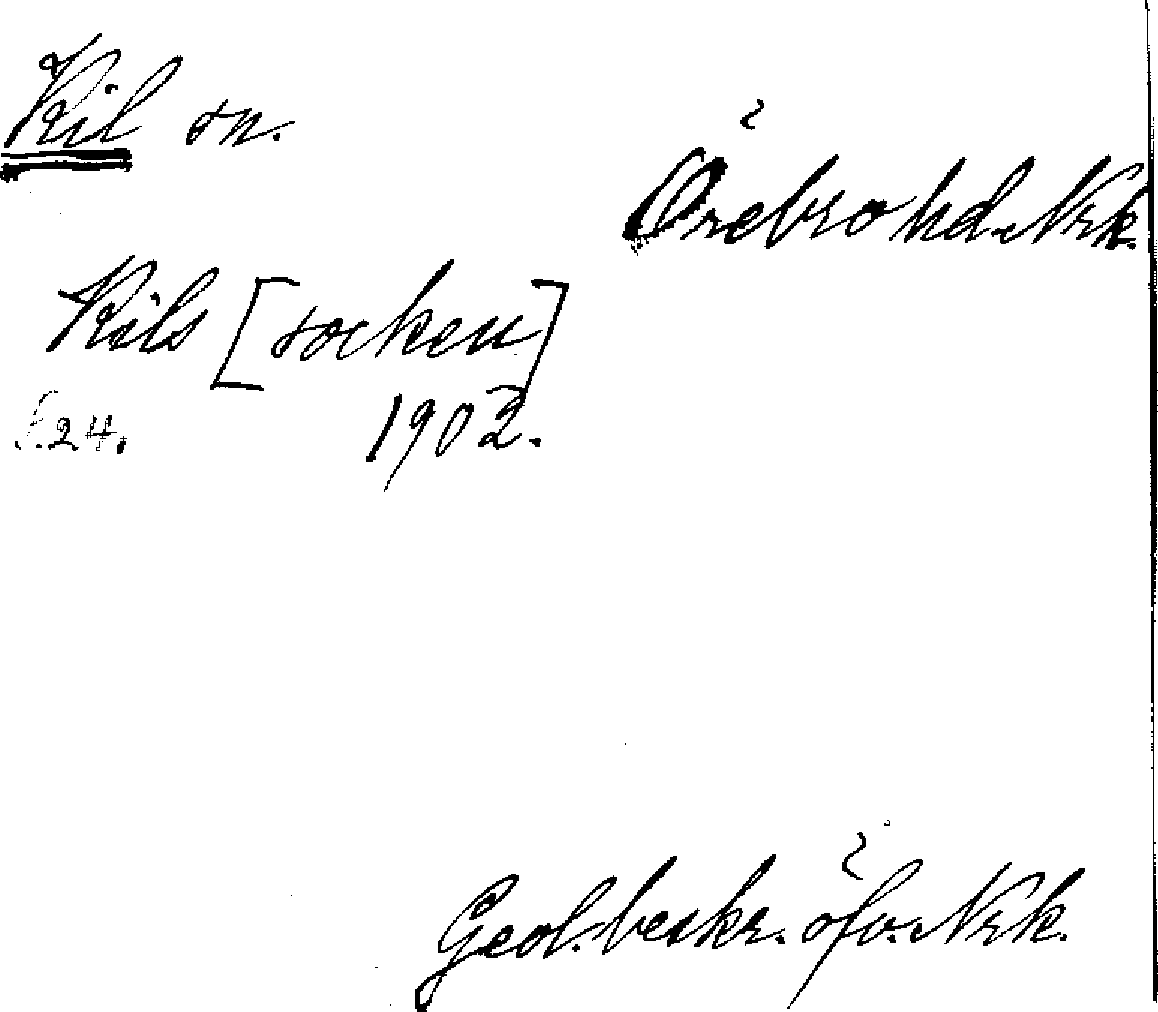 Kil sn.
Örebro hd. Nrk.
Kils [socken]
S. 24. 1902.
Geol. beskr. öfv. Nrk.